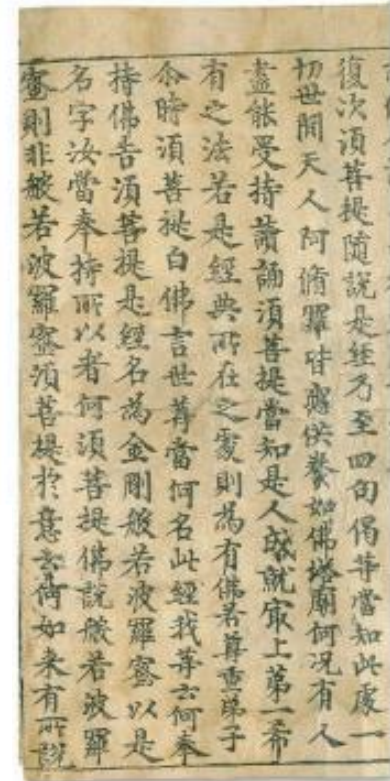 復次須菩提隨說是經乃至四句偈等當知此處一
切世間天人阿脩羅皆應供養如佛塔廟何況有人
盡能受持讀誦須菩提當知是人成就㝡上第一希
有之法若是經典所在之處則為有佛若尊重弟子
尒時須菩提白佛言世尊當何名此經我等云何奉
持佛告須菩提是經名為金剛般若波羅蜜以是
名字汝當奉持所以者何須菩提佛說般若波羅
蜜則非般若波羅蜜須菩提於意云何如來有所說